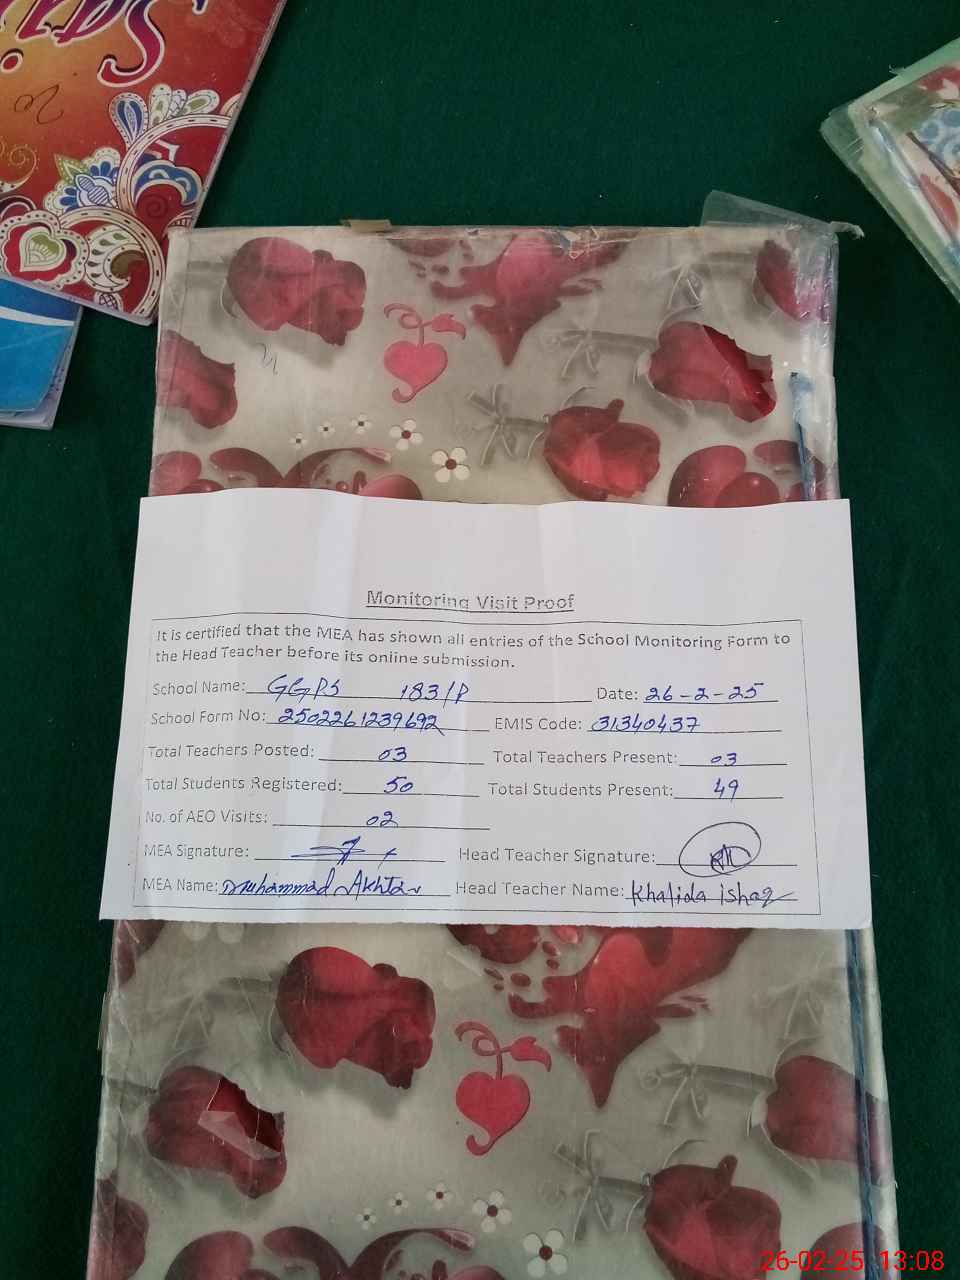 Monitoring Visit Proof
It is certified that the MEA has shown all entries of the School Monitoring Form to
the Head Teacher before its online submission.
School Name: GGPS 183/P Date: 26-2-25
School Form No: 25022261239692 EMIS Code: 31340437
Total Teachers Posted: 03 Total Teachers Present: 03
Total Students Registered: 50 Total Students Present: 49
No. of AEO Visits: 02
MEA Signature: Head Teacher Signature:
MEA Name: Muhammad Akhtar Head Teacher Name: Khalida ishaq
26-02-25 13:08